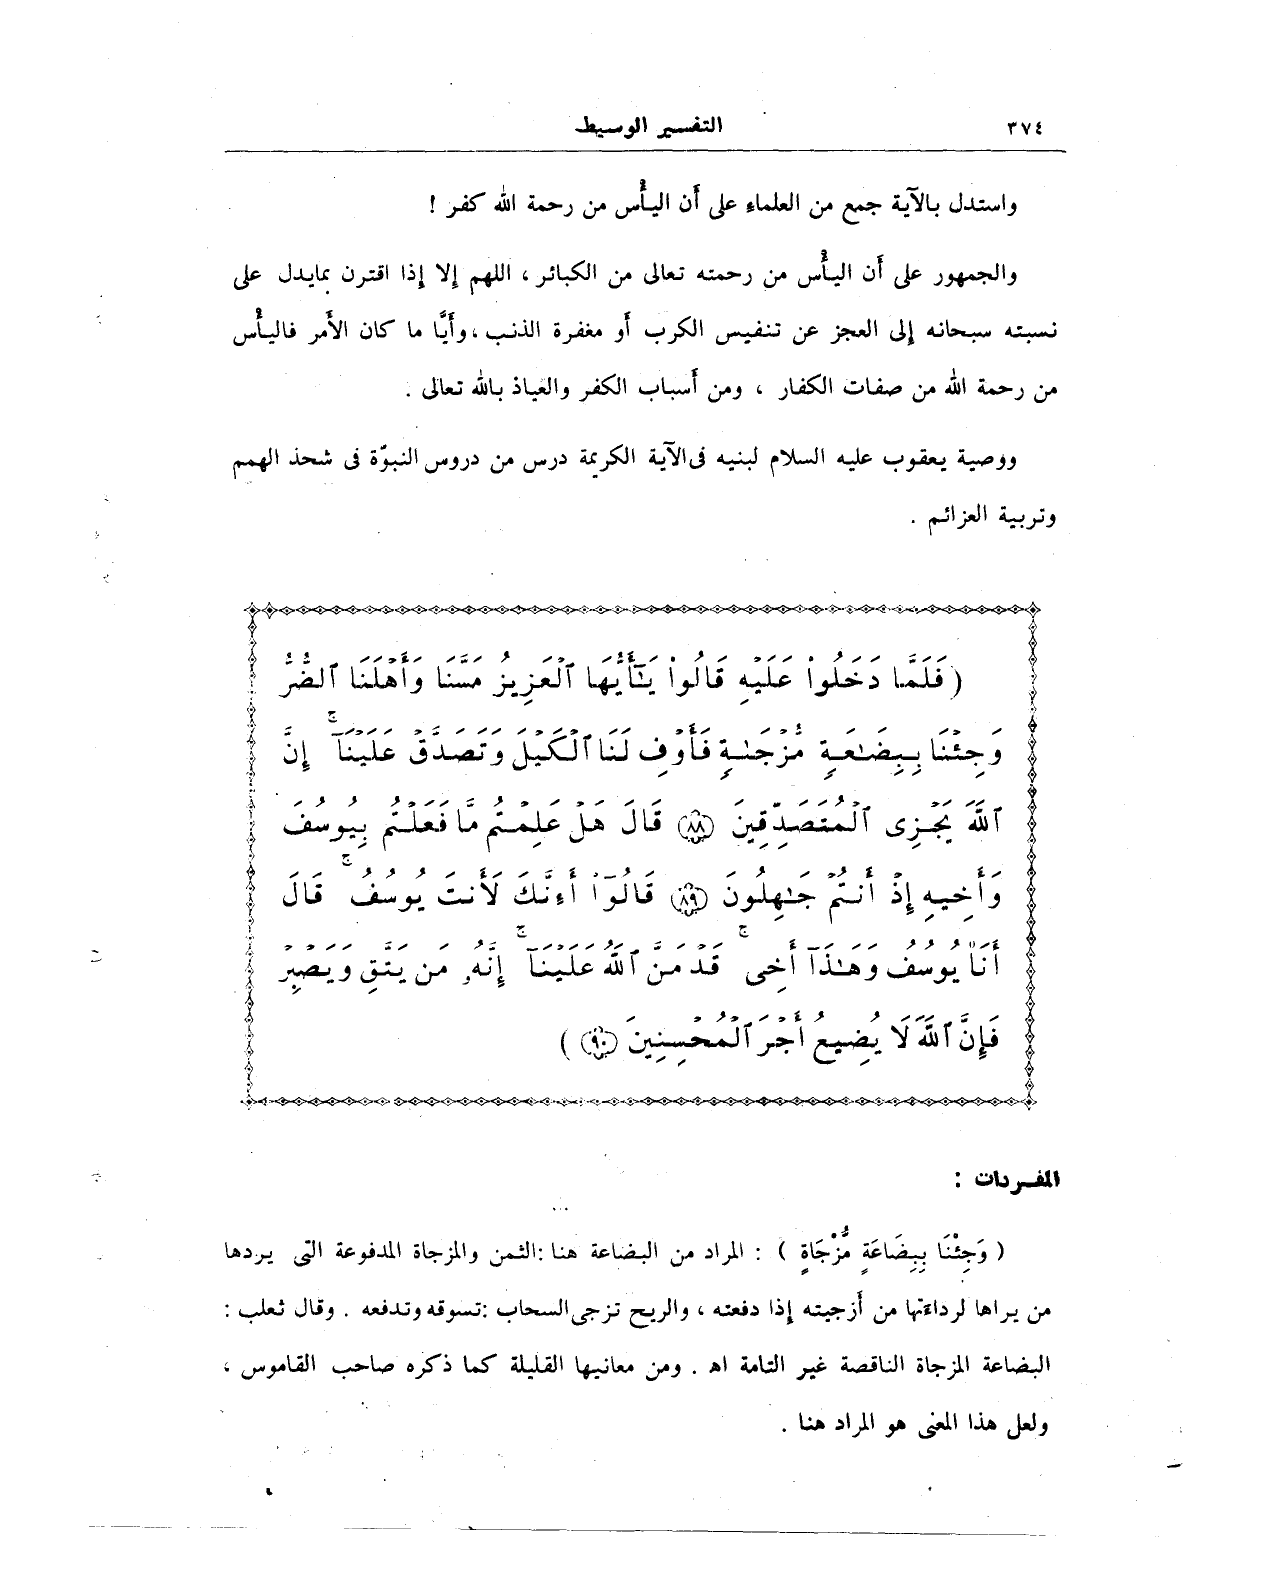 ٣٧٤ التفسير الوسيط
واستدل بالآية جمع من العلماء على أن اليأْس من رحمة الله كفر !
والجمهور على أن اليأْس من رحمته تعالى من الكبائر ، اللهم إلا إذا اقترن بمايدل على
نسبته سبحانه إلى العجز عن تنفيس الكرب أو مغفرة الذنب ، وأيًّا ما كان الأمر فاليأْس
من رحمة الله من صفات الكفار ، ومن أسباب الكفر والعياذ بالله تعالى .
ووصية يعقوب عليه السلام لبنيه فى الآية الكريمة درس من دروس النبوّة فى شحذ الهمم
وتربية العزائم .
( فَلَمَّا دَخَلُوا۟ عَلَيْهِ قَالُوا۟ يَـٰٓأَيُّهَا ٱلْعَزِيزُ مَسَّنَا وَأَهْلَنَا ٱلضُّرُّ
وَجِئْنَا بِبِضَـٰعَةٍ مُّزْجَىٰةٍ فَأَوْفِ لَنَا ٱلْكَيْلَ وَتَصَدَّقْ عَلَيْنَآ ۖ إِنَّ
ٱللَّهَ يَجْزِى ٱلْمُتَصَدِّقِينَ ﴿٨٨﴾ قَالَ هَلْ عَلِمْتُم مَّا فَعَلْتُم بِيُوسُفَ
وَأَخِيهِ إِذْ أَنتُمْ جَـٰهِلُونَ ﴿٨٩﴾ قَالُوٓا۟ أَءِنَّكَ لَأَنتَ يُوسُفُ ۖ قَالَ
أَنَا۠ يُوسُفُ وَهَـٰذَآ أَخِى ۖ قَدْ مَنَّ ٱللَّهُ عَلَيْنَآ ۖ إِنَّهُۥ مَن يَتَّقِ وَيَصْبِرْ
فَإِنَّ ٱللَّهَ لَا يُضِيعُ أَجْرَ ٱلْمُحْسِنِينَ ﴿٩٠﴾ )
المفردات :
( وَجِئْنَا بِبِضَاعَةٍ مُّزْجَاةٍ ) : المراد من البضاعة هنا : الثمن والمزجاة المدفوعة التى يردها
من يراها لرداءتها من أزجيته إذا دفعته ، والريح تزجى السحاب : تسوقه وتدفعه . وقال ثعلب :
البضاعة المزجاة الناقصة غير التامة اه . ومن معانيها القليلة كما ذكره صاحب القاموس ،
ولعل هذا المعنى هو المراد هنا .